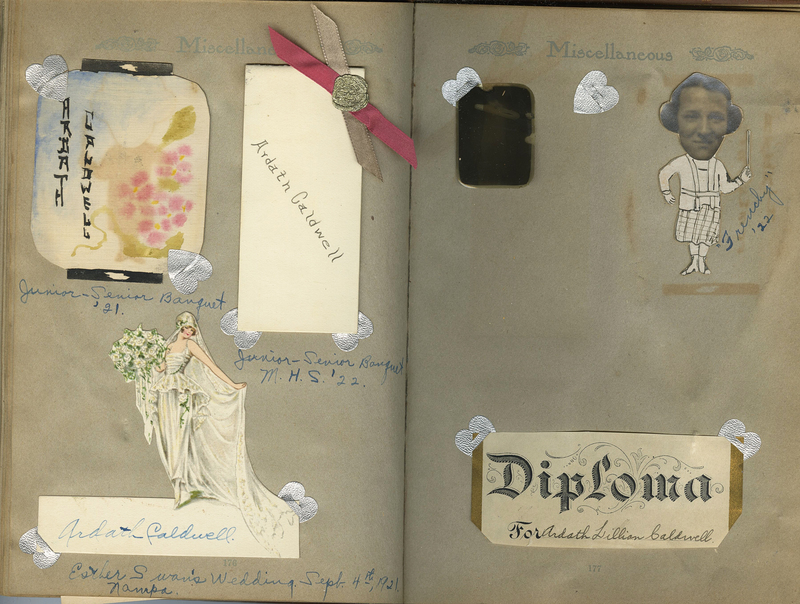 Miscellaneous
ARDATH
CALDWELL
Ardath Caldwell
Junior-Senior Banquet
'21.
Junior-Senior Banquet
M. H. S. '22.
Ardath Caldwell.
176
Esther Swan's Wedding. Sept. 4th, 1921.
Nampa.
Miscellaneous
Frenchy
'22
Diploma
For Ardath Lillian Caldwell
177